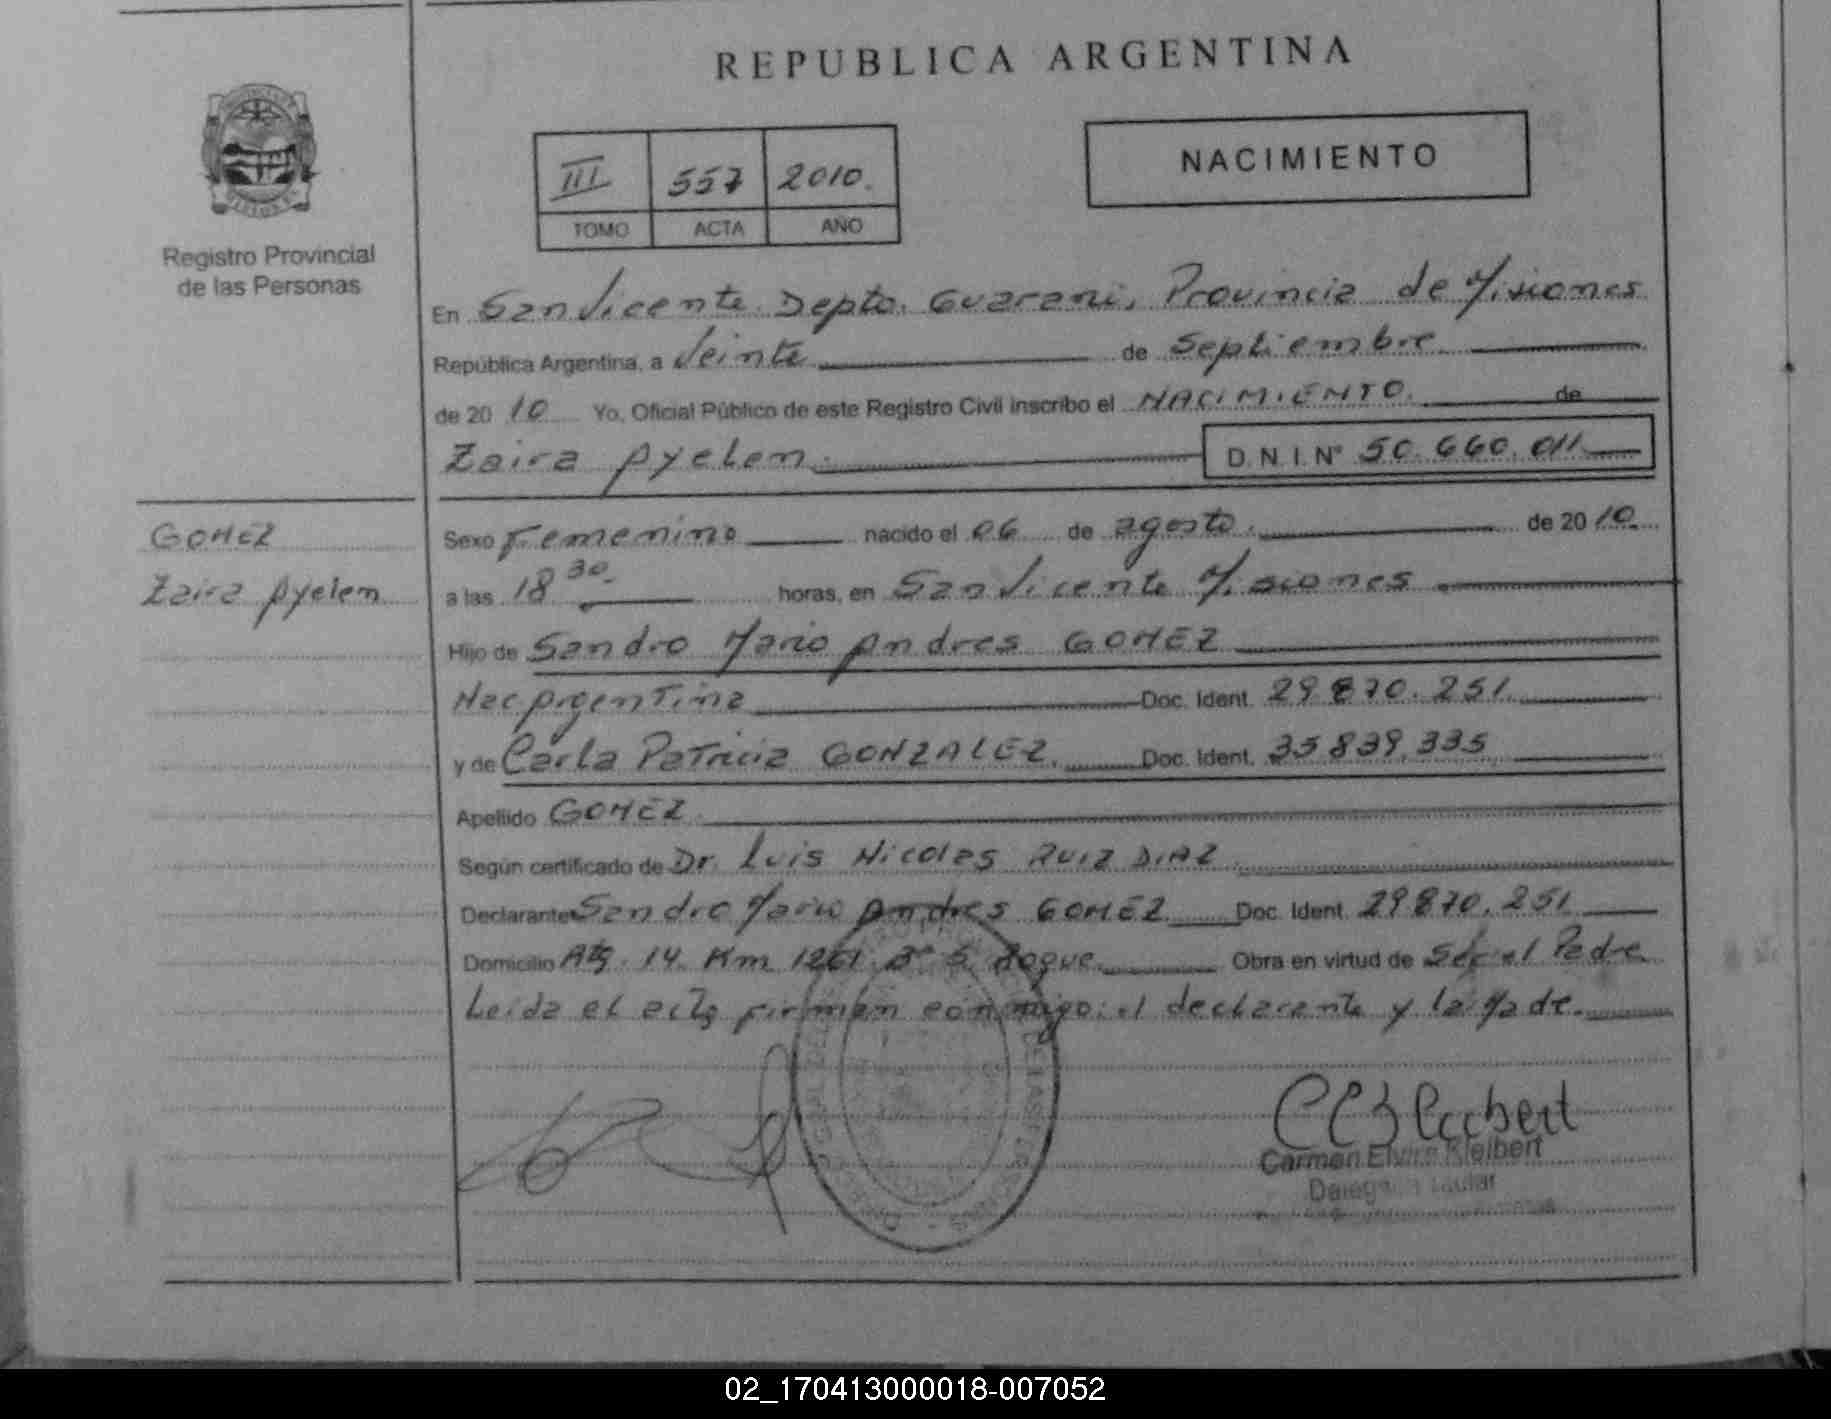 REPUBLICA ARGENTINA
III 557 2010.
TOMO ACTA AÑO
NACIMIENTO
Registro Provincial
de las Personas
En San Vicente. Depto. Guarani, Provincia de Misiones
República Argentina, a Veinte de Septiembre
de 20 10 Yo, Oficial Público de este Registro Civil inscribo el NACIMIENTO. de
Zaira Ayelem. D.N.I. Nº 50.660.011
GOMEZ
Zaira Ayelem
Sexo Femenino nacido el 06 de agosto. de 20 10.
a las 18 30. horas, en San Vicente Misiones
Hijo de Sandro Mario Andres GOMEZ
Nac Argentina Doc. Ident. 29.870.251
y de Carla Patricia GONZALEZ. Doc. Ident. 35.839.335
Apellido GOMEZ.
Según certificado de Dr. Luis Nicolas RUIZ DIAZ
Declarante Sandro Mario Andres GOMEZ Doc. Ident. 29.870.251
Domicilio 14 Km 1261 Roque Obra en virtud de Ser el Padre
Leida el acta firman conmigo: el declarante y la Madre.
Carmen Elvira Kleibert
02_170413000018-007052